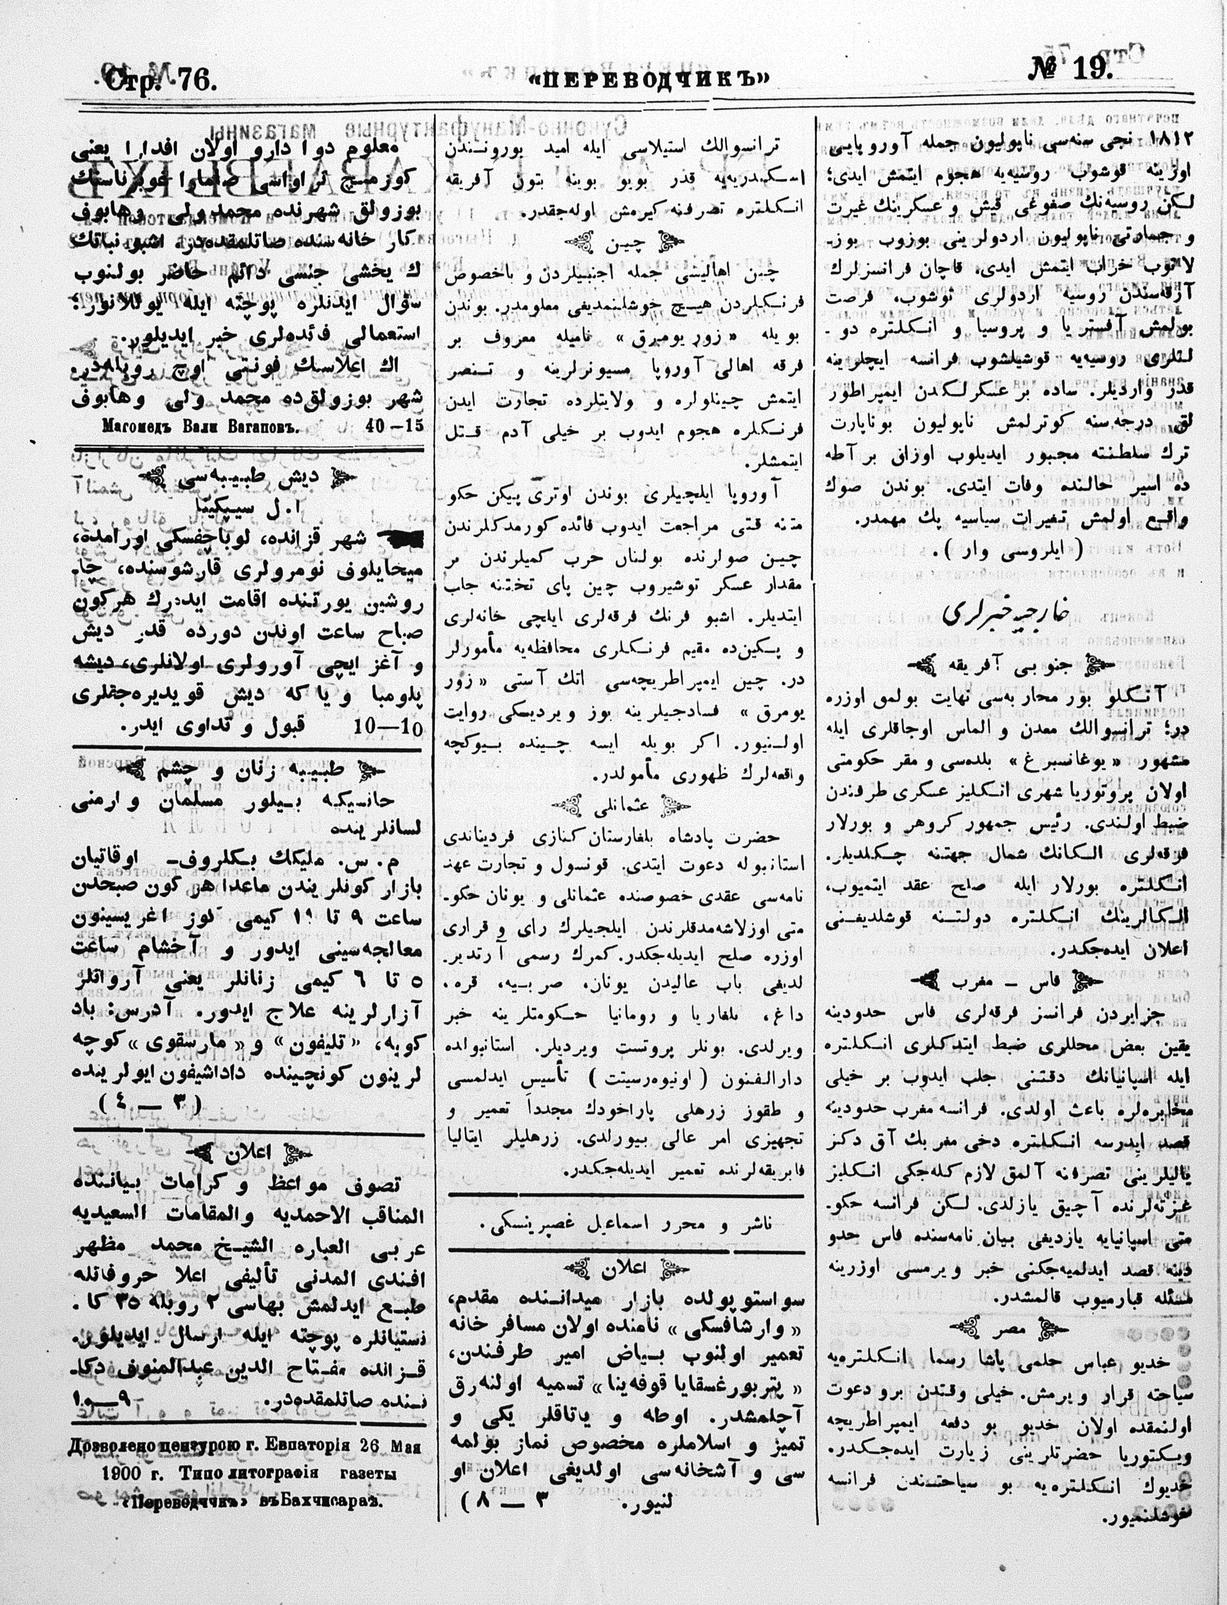 Стр. 76.
«ПЕРЕВОДЧИКЪ»
№ 19.
١٨١٢ نجی سنه‌سی ناپولیون جمله آوروپایی
اوزینه قوشوب روسیه‌یه هجوم ایتمش ایدی؛
لکن روسیه‌نك صغوغی قیش و عسکرینك غیرت
و جسارتی ناپولیون اردولرینی بوزوب بوز-
لاتوب خراب ایتمش ایدی. قاچان فرانسزلرك
آرقه‌سندن روسیه اردولری توشوب، فرصت
بولمش آفستریا و پروسیا و انکلتره دو-
لتلری روسیه‌یه قوشیلشوب فرانسه ایچلرینه
قدر واردیلر. ساده بر عسکرلکدن ایمپراطور
لق درجه‌سنه کوترلمش ناپولیون بوناپارت
ترك سلطنته مجبور ایدیلوب اوزانی بر آطه
ده اسیر حالنده وفات ایتدی. بوندن صوك
واقع اولمش تغیرات سیاسیه پك مهمدر.
( ایلروسی وار ).
خارجیه خبرلری
جنوبی آفریقه
آنکلو بور محاربه‌سی نهایت بولمق اوزره
در؛ ترانسوالك معدن و الماس اوجاقلری ایله
مشهور « یوغانسبرغ » بلده‌سی و مقر حکومتی
اولان پروتوریا شهری انکلیز عسکری طرفندن
ضبط اولندی. رئیس جمهور کروهر و بورلار
فرقه‌لری الکانك شمال جهتنه چکلدیلر.
انکلتره بورلار ایله صلح عقد ایتمیوب،
الکالرینك انکلتره دولتنه قوشلدیغنی
اعلان ایده‌جکدر.
فاس — مغرب
جزایردن فرانسز فرقه‌لری فاس حدودینه
یقین بعض محللری ضبط ایتدکلری انکلتره
ایله اسپانیانك دقتنی جلب ایدوب بر خیلی
مخابره‌لره باعث اولدی. فرانسه مغرب حدودینه
قصد ایدرسه انکلتره دخی مغربك آق دکز
یالیلرینی تصرفنه آلمق لازم کله‌جکی انکلیز
غزته‌لرنده آچیق یازلدی. لکن فرانسه حکو-
متی اسپانیایه یازدیغی بیان نامه‌سنده فاس حدو
دینه قصد ایدلمیه‌جکنی خبر ویرمسی اوزرینه
مسئله قبارمیوب قالمشدر.
مصر
خدیو عباس حلمی پاشا رسما انکلتره‌یه
سیاحته قرار ویرمش. خیلی وقتدن برو دعوت
اولنمقده اولان خدیو بو دفعه ایمپراطریچه
ویکتوریا حضرتلرینی زیارت ایده‌جکدر.
خدیوك انکلتره‌یه بو سیاحتندن فرانسه
خوشلنمیور.
ترانسوالك استیلاسی ایله امید بوروندن
اسکندریه‌یه قدر بویو بوینه بتون آفریقه
انکلتره تصرفنه کیرمش اوله‌جقدر.
چین
چین اهالیسی جمله اجنبیلردن و باخصوص
فرنکلردن هیچ خوشلنمدیغی معلومدر. بوندن
بویله « زور یومرق » نامیله معروف بر
فرقه اهالی آوروپا مسیونرلرینه و تنصر
ایتمش چینلولره و ولایتلرده تجارت ایدن
فرنکلره هجوم ایدوب بر خیلی آدم قتل
ایتمشلر.
آوروپا ایلچیلری بوندن اوتری پیکن حکو
متنه قتی مراجعت ایدوب فائده کورمدکلرندن
چین صولرنده بولنان حرب کمیلرندن بر
مقدار عسکر توشیروب چین پای تختنه جلب
ایتدیلر. اشبو فرنك فرقه‌لری ایلچی خانه‌لری
و پکین‌ده مقیم فرنکلری محافظه‌یه مأمورلر
در. چین ایمپراطریچه‌سی اتك آستی « زور
یومرق » فسادجیلرینه یوز ویردیکی روایت
اولنیور. اکر بویله ایسه چینده بیوکچه
واقعه‌لرك ظهوری مأمولدر.
عثمانلی
حضرت پادشاه بلغارستان کنازی فردیناندی
استانبوله دعوت ایتدی. قونسول و تجارت عهد
نامه‌سی عقدی خصوصنده عثمانلی و یونان حکو-
متی اوزلاشه‌مدقلرندن ایلچیلرك رای و قراری
اوزره صلح ایدیله‌جکدر. کمرك رسمی آرتدیر-
لدیغی باب عالیدن یونان، صربیه، قره-
داغ، بلغاریا و رومانیا حکومتلرینه خبر
ویرلدی. بونلر پروتست ویردیلر. استانبولده
دارالفنون ( اونیوه‌رسیتت ) تأسیس ایدلمسی
و طقوز زرهلی پاراخودك مجدداً تعمیر و
تجهیزی امر عالی بیورلدی. زرهلیلر ایتالیا
فابریقه‌لرنده تعمیر ایدیله‌جکدر.
ناشر و محرر اسماعیل غصپرینسکی.
اعلان
سواستوپولده بازار میداننده مقدم،
« وارشافسکی » نامنده اولان مسافر خانه
تعمیر اولنوب بیاض امیر طرفندن،
« پتربورغسقایا قوفه‌ینا » تسمیه اولنه‌رق
آچلمشدر. اوطه و یاتاقلر یکی و
تمیز و اسلاملره مخصوص نماز بولمه
سی و آشخانه‌سی اولدیغی اعلان او
لنیور. ٣ — ٨ )
معلوم دوا دارو اولان افدارا یعنی
کوزمیچ تراواسی صامارا غوبرناسنك
بوزولق شهرنده محمدولی وهابوف
کار خانه‌سنده صاتلمقده‌در. اشبو نباتك
ك یخشی جنسی دائم حاضر بولنوب
سؤال ایدنلره پوچته ایله یوللانور؛
استعمالی فائده‌لری خبر ایدیلور.
اك اعلاسك فونتی اوچ روبله‌در.
شهر بوزولق‌ده محمد ولی وهابوف
Магомедъ Вали Вагаповъ. 40—15
دیش طبیبه‌سی
شهر قزانده، لوباچفسکی اورامده،
میخایلوف نومرولری قارشوسنده، چا-
روشین یورتنده اقامت ایدرك هرکون
صباح ساعت اوندن دورده قدر دیش
و آغز ایچی آورولری اولانلری، دیشه
پلومبا ویاکه دیش قویدیره‌جقلری
قبول و تداوی ایدر. 10—10
طبیبه زنان و چشم
حانسیکیه بیلور مسلمان و ارمنی
لسانلرینده
م. س. ملیکك بکلروف- اوقاتیان
بازار کونلریندن ماعدا هر کون صبحدن
ساعت ٩ تا ١١ کیمی کوز اغریسینون
معالجه‌سینی ایدور و آخشام ساعت
٥ تا ٦ کیمی زنانلر یعنی آرواتلر
آزارلرینه علاج ایدور. آدرس: باد
کوبه، « تلیفون » و « مارسقوی » کوچه
لرینون کونجینده داداشیفون ایولرینده
( ٣ — ٤ )
اعلان
تصوف مواعظ و کرامات بیاننده
المناقب الاحمدیه والمقامات السعیدیه
عربی العباره الشیخ محمد مظهر
افندی المدنی تألیفی اعلا حروفاتله
طبع ایدلمش بهاسی ٢ روبله ٣٥ کا.
نستیانلره پوچته ایله ارسال ایدیلور.
قزانده مفتاح الدین عبدالمنوف دکا-
ننده صاتلمقده‌در. ٩—١٠
Дозволено цензурою г. Евпаторія 26 Мая
1900 г. Типо литографія газеты
«Переводчикъ» въ Бахчисараѣ.